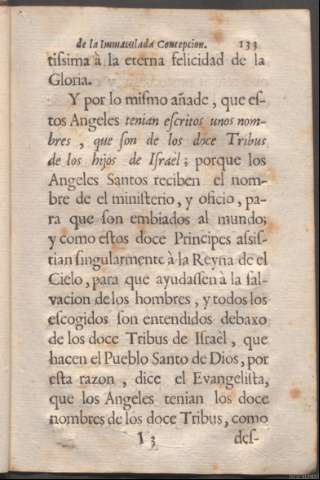 de la Immaculada Concepcion. 133
tissima à la eterna felicidad de la
Gloria.
Y por lo mismo añade, que es-
tos Angeles tenian escritos unos nom-
bres, que son de los doce Tribus
de los hijos de Israèl; porque los
Angeles Santos reciben el nom-
bre de el ministerio, y oficio, pa-
ra que son embiados al mundo;
y como estos doce Principes assis-
tian singularmente à la Reyna de el
Cielo, para que ayudassen à la sal-
vacion de los hombres, y todos los
escogidos son entendidos debaxo
de los doce Tribus de Israèl, que
hacen el Pueblo Santo de Dios, por
esta razon, dice el Evangelista,
que los Angeles tenian los doce
nombres de los doce Tribus, como
I 3 des-